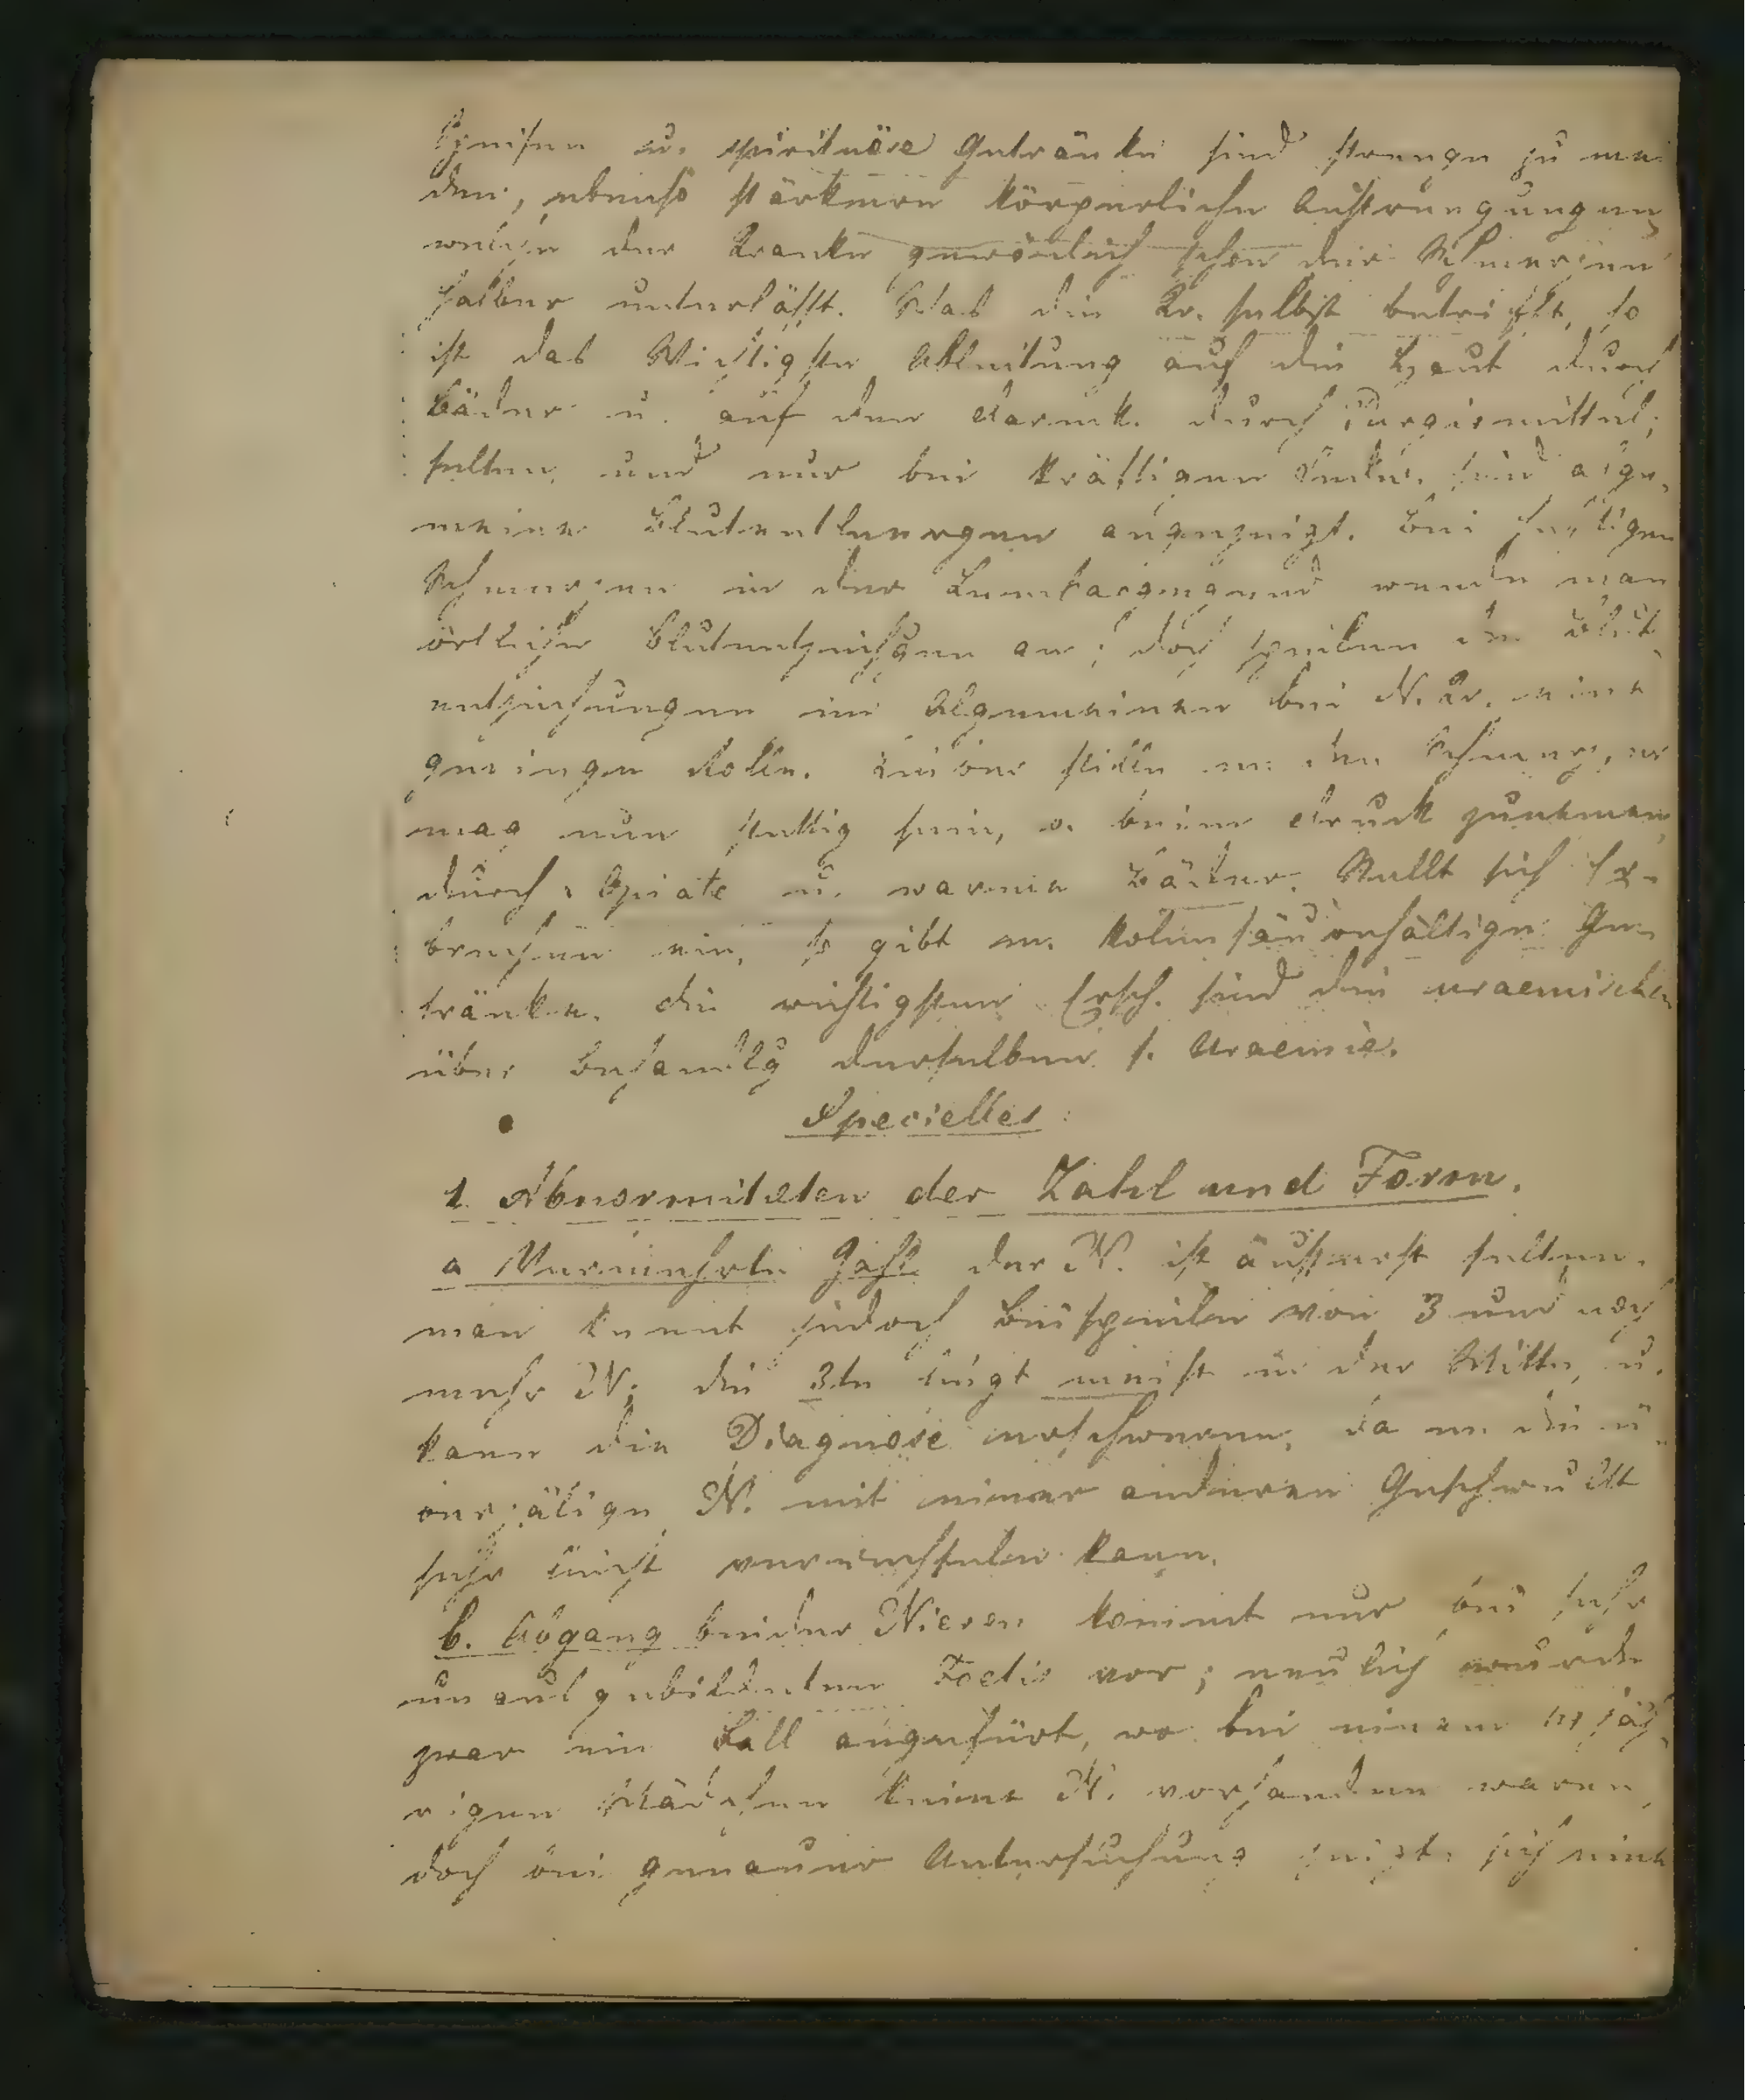 Speisen u. spirituöse Getränke sind strenge zu mei
den, ebenso stärkere körperliche Anstrengungen
welche der Kranke gewönlich schon der Schmerzen
halber unterläßt. Was die Kr. selbst betrifft, so
ist das Wichtigste Ableitung auf die Haut durch
Bäder u. auf den Darmk. durch Purgiermittel;
selten und nur bei kräftigen sind alge-
meine Blutentleergen angezeigt. Bei heftigen
Schmerzen in der Lumbargegend wende man
örtliche Blutentziehgen an; doch spielen die Blut-
entziehungen im Algemeinen bei N. Kr. eine
geringe Rolle. stille m. den Schmerz, er
mag nun stettig sein, o. beim Druck zunemen,
durch Opiate u. warme Bäder. Stellt sich Er-
brechen ein, so gibt m. kolensäurehältige Ge-
tränke. Die wichtigsten Ersch. sind die uraemischen
über Behandlg derselben s. Uraemie.
Specielles:
1. Abnormiteten der Zahl und Form.
a Vermehrte Zahl der N. ist äusserst selten.
man kennt jedoch Beispiele von 3 und noch
mehr N; die 3te liegt meist in der Mitte, u.
kann die Diagnose erschweren, da m. die ü-
berzälige N. mit einer anderen Geschwulst
sehr leicht verwechseln kann.
b. Abgang beider Nieren kommt nur bei sehr
unausgebildeten Foetis vor; neulich wurde
zwar ein Fall angefürt, wo bei einem jäh-
rigen Mädchen keine N. vorhanden waren,
doch bei genauer Untersuchung zeigte sich eine